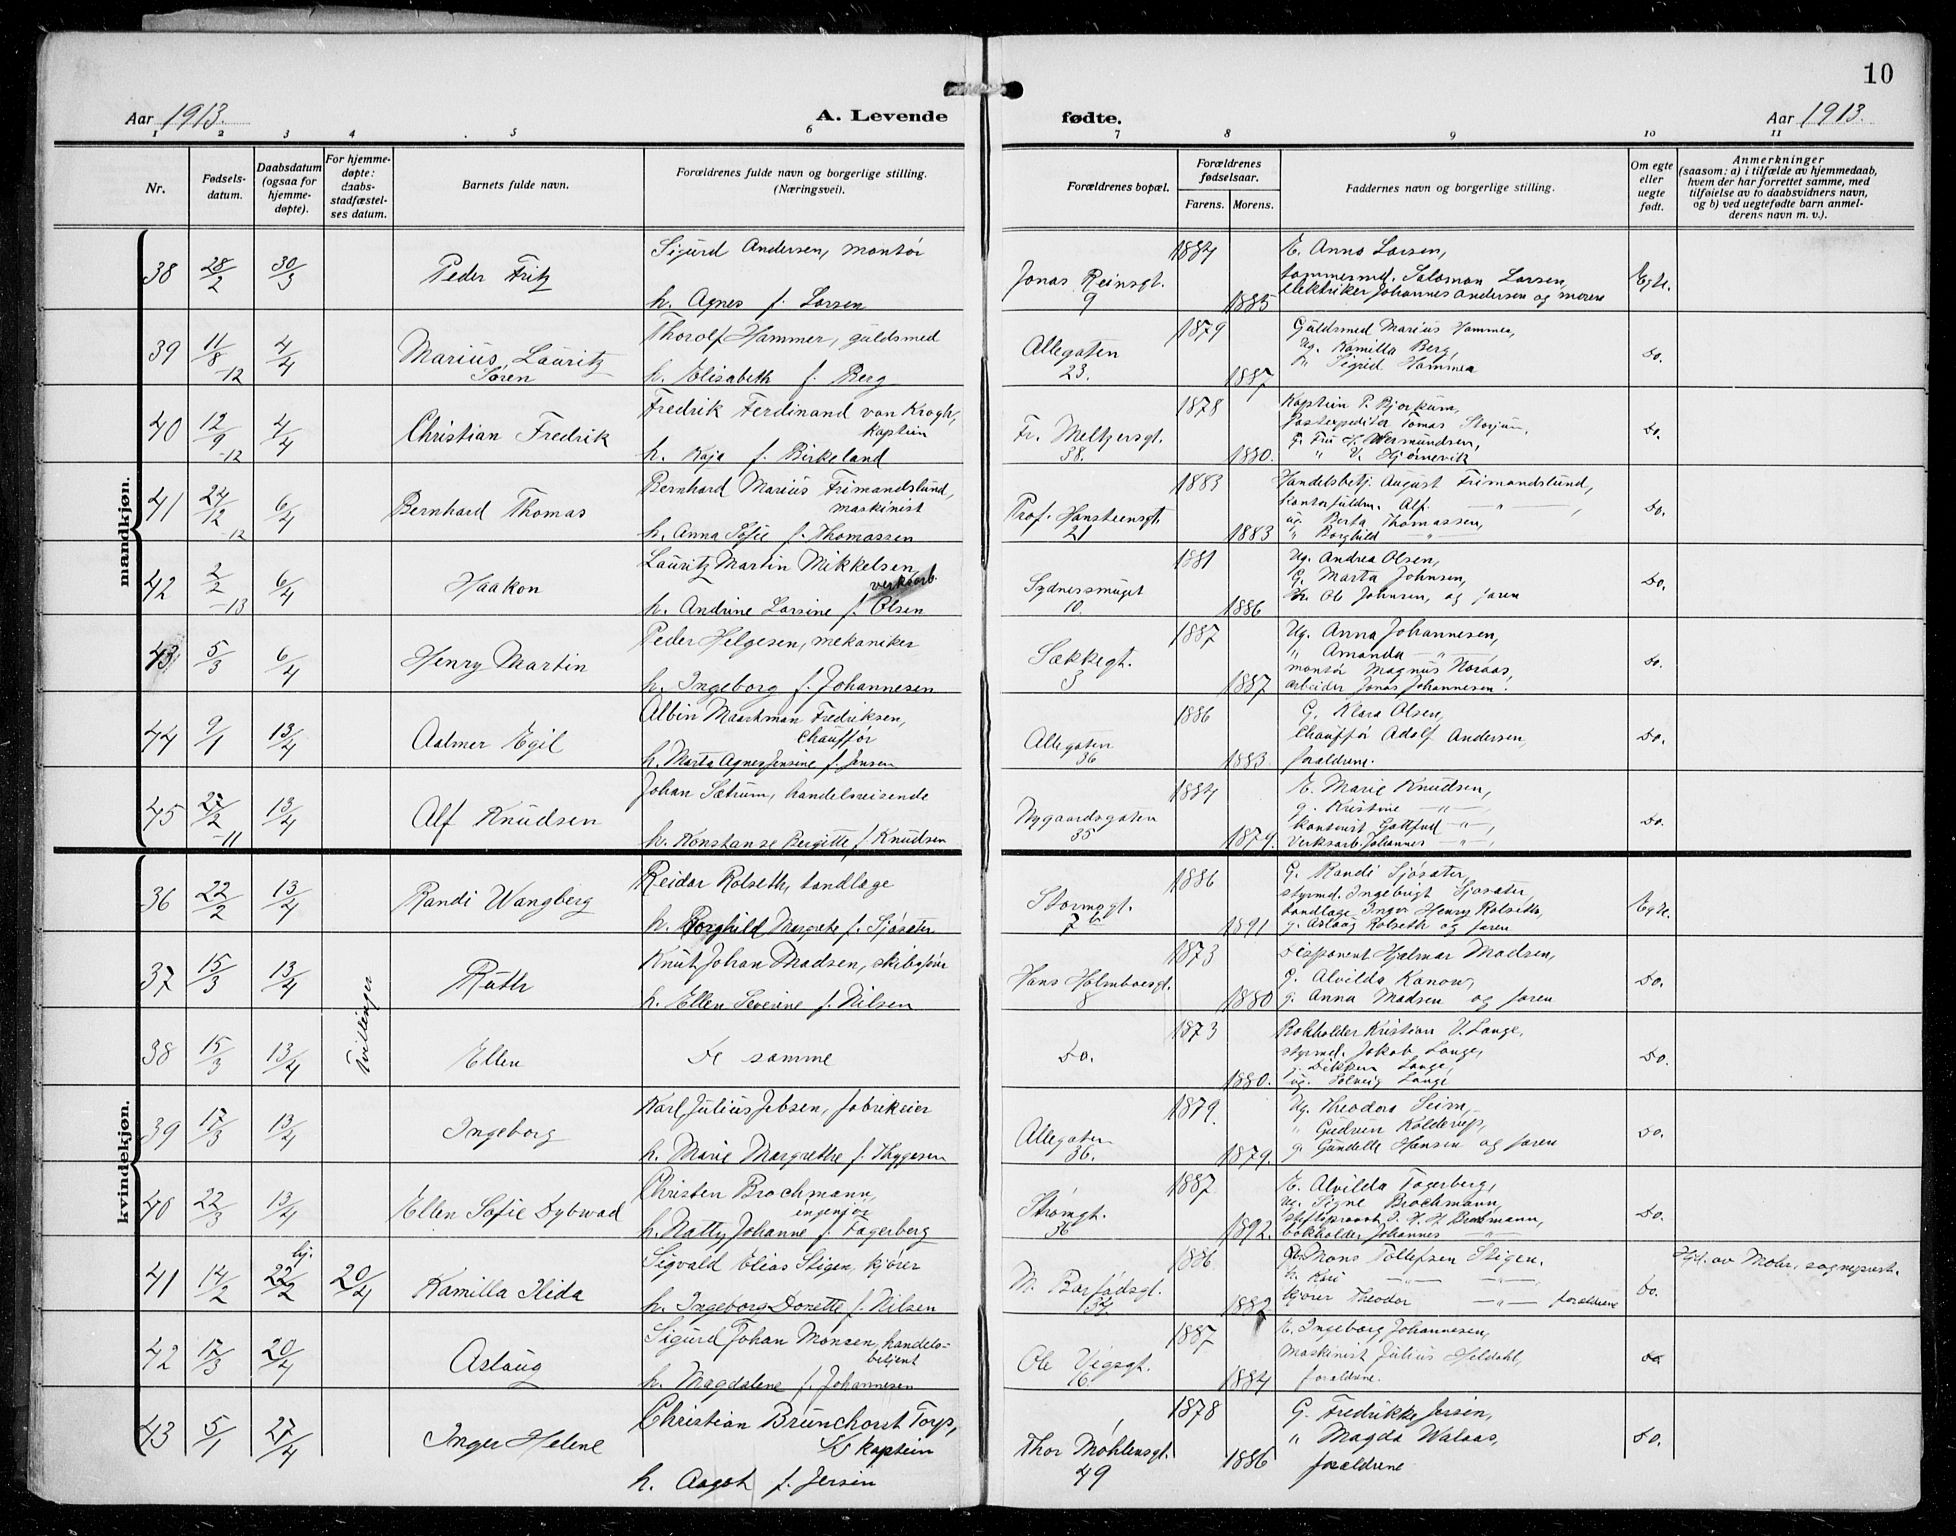 10
Aar 1913.
A. Levende
fødte.
Aar 1913.
1 2 3 4 5 6 7 8 9 10 11
Nr.
Fødsels-
datum.
Daabsdatum
(ogsaa for
hjemme-
døpte).
For hjemme-
døpte:
daabs-
stadfæstel-
ses datum.
Barnets fulde navn.
Forældrenes fulde navn og borgerlige stilling.
(Næringsvei).
Forældrenes bopæl.
Forældrenes
fødselsaar.
Farens. Morens.
Faddernes navn og borgerlige stilling.
Om egte
eller
uegte
født.
Anmerkninger
(saasom: a) i tilfælde av hjemmedaab,
hvem der har forrettet samme, med
tilføielse av to daabsvidners navn,
og b) ved uegtefødte barn anmel-
derens navn m. v.).
mandkjøn.
38 28/2 30/3 Peder Fritz
Sigurd Andersen, montør
h. Agnes f. Larsen
Jonas Reinsgt.
9
1884 1885
E. Anna Larsen,
tømmermd. Salomon Larsen,
elektriker Johannes Andersen og moren
Egte.
39 11/8 -12 4/4 Marius Lauritz
Søren
Thorolf Hammer, guldsmed
h. Elisabeth f. Berg
Allegaten
23.
1879 1887
Guldsmed Marius Hammer,
Ug. Kamilla Berg,
" Sigrid Hammer
Do.
40 12/9 -12 4/4 Christian Fredrik
Fredrik Ferdinand von Krogh,
kaptein
h. Kaja f. Birkeland
Fr. Meltzersgt.
38.
1878 1880.
Kaptein P. Bjorkum,
Postexpeditør Tomas Storjum.
G. Fru H. Wermundsen,
" V. Hjørnevik
Do.
41 24/12 -12 6/4 Bernhard Thomas
Bernhard Marius Frimandslund,
maskinist
h. Anna Sofie f. Thomassen
Prof. Hansteensgt.
21
1883 1883
Handelsbetj. August Frimandslund,
Kontorfuldm. Alf. — " —,
ug. Berta Thomassen,
" Borghild — " —
Do.
42 2/2 -13 6/4 Haakon
Lauritz Martin Mikkelsen,
verksarb.
h. Andrine Larsine f. Olsen
Sydnessmuget
10.
1881 1886
Ug. Andrea Olsen,
G. Marta Johnsen,
Hr. Ob Johnsen, og faren
Do.
43. 5/3 6/4 Henry Martin
Peder Helgesen, mekaniker
h. Ingeborg f. Johannesen
Sækkegt.
3
1887 1887
Ug. Anna Johannesen,
" Amanda — " —,
montør Magnus Noraas,
arbeider Jonas Johannesen.
Do.
44 9/1 13/4 Aalmer Egil
Albin Maarkman Fredriksen,
Chauffør
h. Marta Agnes Jensine f. Jensen
Allegaten
36
1886 1883.
G. Klara Olsen,
Chauffør Adolf Andersen,
forældrene.
Do.
45 27/2 -11 13/4 Alf Knudsen
Johan Sætrum, handelsreisende
h. Konstanse Bergitte f. Knudsen
Nygaardsgaten
35
1884 1879.
E. Marie Knudsen,
g. Kristine — " —,
kontorist Gottfred — " —,
Verksarb. Johannes — " —,
Do.
kvindekjøn.
36 22/2 13/4 Randi Wangberg
Reidar Rolseth, tandlæge
h. Borghild Margrete f. Sjøsæter
Stormsgt.
7 b
1886 1891
G. Randi Sjøsæter,
styrmd. Ingebrigt Sjøsæter,
tandlæge Inger Henry Rolseth,
g. Aslaug Rolseth og faren
Egte.
37 15/3 13/4 Ruth
Knut Johan Madsen, skibsfør
h. Ellen Severine f. Nilsen
Hans Holmboesgt.
8
1873 1880
Disponent Hjalmar Madsen,
G. Alvilda Kanow,
g. Anna Madsen og faren
Do.
Tvillinger
38 15/3 13/4 Ellen
De samme
Do.
1873 1880.
Bokholder Kristian V. Lange,
styrmd. Jakob Lange,
g. Dikken Lange,
ug. Solveig Lange
Do.
39 17/3 13/4 Ingeborg
Karl Julius Jebsen, fabrikeier
h. Marie Margrethe f. Thygesen
Allegaten
36.
1879. 1879.
Ug. Theodora Seim,
" Gudrun Kolderup,
g. Gundelle Hansen og faren
Do.
40 22/3 13/4 Ellen Sofie Dybwad
Christen Brochmann,
ingeniør
h. Natty Johanne f. Fagerberg
Strømgt.
36
1887 1892.
E. Alvilda Fagerberg,
Ug. Signe Brochmann,
stiftsprovst J. H. H. Brochmann,
bokholder Johannes — " —
Do.
41 14/2 hj. 22/2 20/4 Kamilla Ilida
Sigvald Elias Stigen, kjører
h. Ingeborg Dorette f. Nilsen
M. Barfødsgt.
13
1886 1882
Mons Tollefsen Stigen.
h. Kari — " —
kjører Theodor — " — forældrene
Do.
Hjd. av Mohr, sogneprest.
42 17/3 20/4 Aslaug
Sigurd Johan Monsen, handels-
betjent
h. Magdalene f. Johannesen
Ole Vigsgt.
16.
1887 1884
E. Ingeborg Johannesen,
Maskinist Julius Heldahl,
forældrene.
do
43 5/1 27/4 Inger Helene
Christian Brunchorst Torp,
kaptein
h. Aagot f. Jersin
Thor Møhlensgt.
49
1878 1886
G. Fredrikke Jersin,
" Magda Walaas,
forældrene
Do.